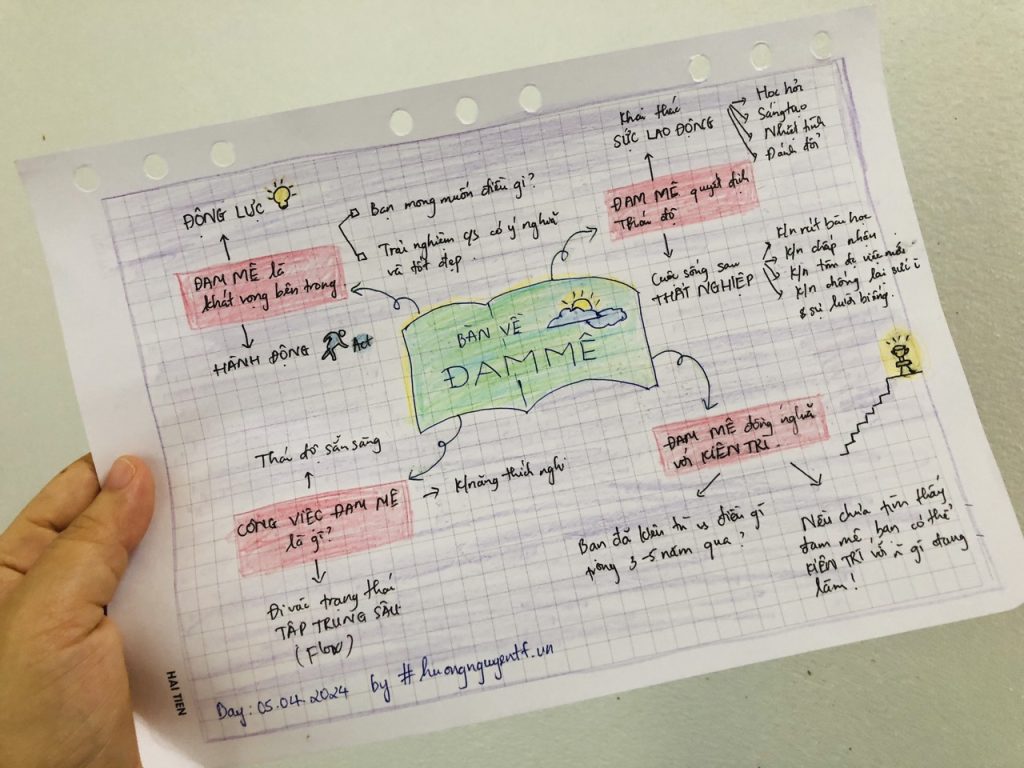 BÀN VỀ
ĐAM MÊ
ĐAM MÊ là
khát vọng bên trong
ĐỘNG LỰC
HÀNH ĐỘNG
Act
Bạn mong muốn điều gì?
Trải nghiệm c/s có ý nghĩa
và tốt đẹp.
ĐAM MÊ quyết định
Thái độ
Khai thác
SỨC LAO ĐỘNG
Học hỏi
Sáng tạo
Nhiệt tình
Đánh đổi
Cuộc sống sau
THẤT NGHIỆP
K/n rút bài học
K/n chấp nhận
K/n tìm đc việc mới
K/n chống lại sức ì
& sự lười biếng.
ĐAM MÊ đồng nghĩa
với KIÊN TRÌ.
Bạn đã kiên trì vs điều gì
trong 3-5 năm qua?
Nếu chưa tìm thấy
đam mê, bạn có thể
KIÊN TRÌ với n~ gì đang
làm!
CÔNG VIỆC ĐAM MÊ
là gì?
Thái độ sẵn sàng
K/năng thích nghi
Đi vào trạng thái
TẬP TRUNG SÂU
(Flow)
Day: 05.04.2024 by #huongnguyentf.vn
HAI TIEN